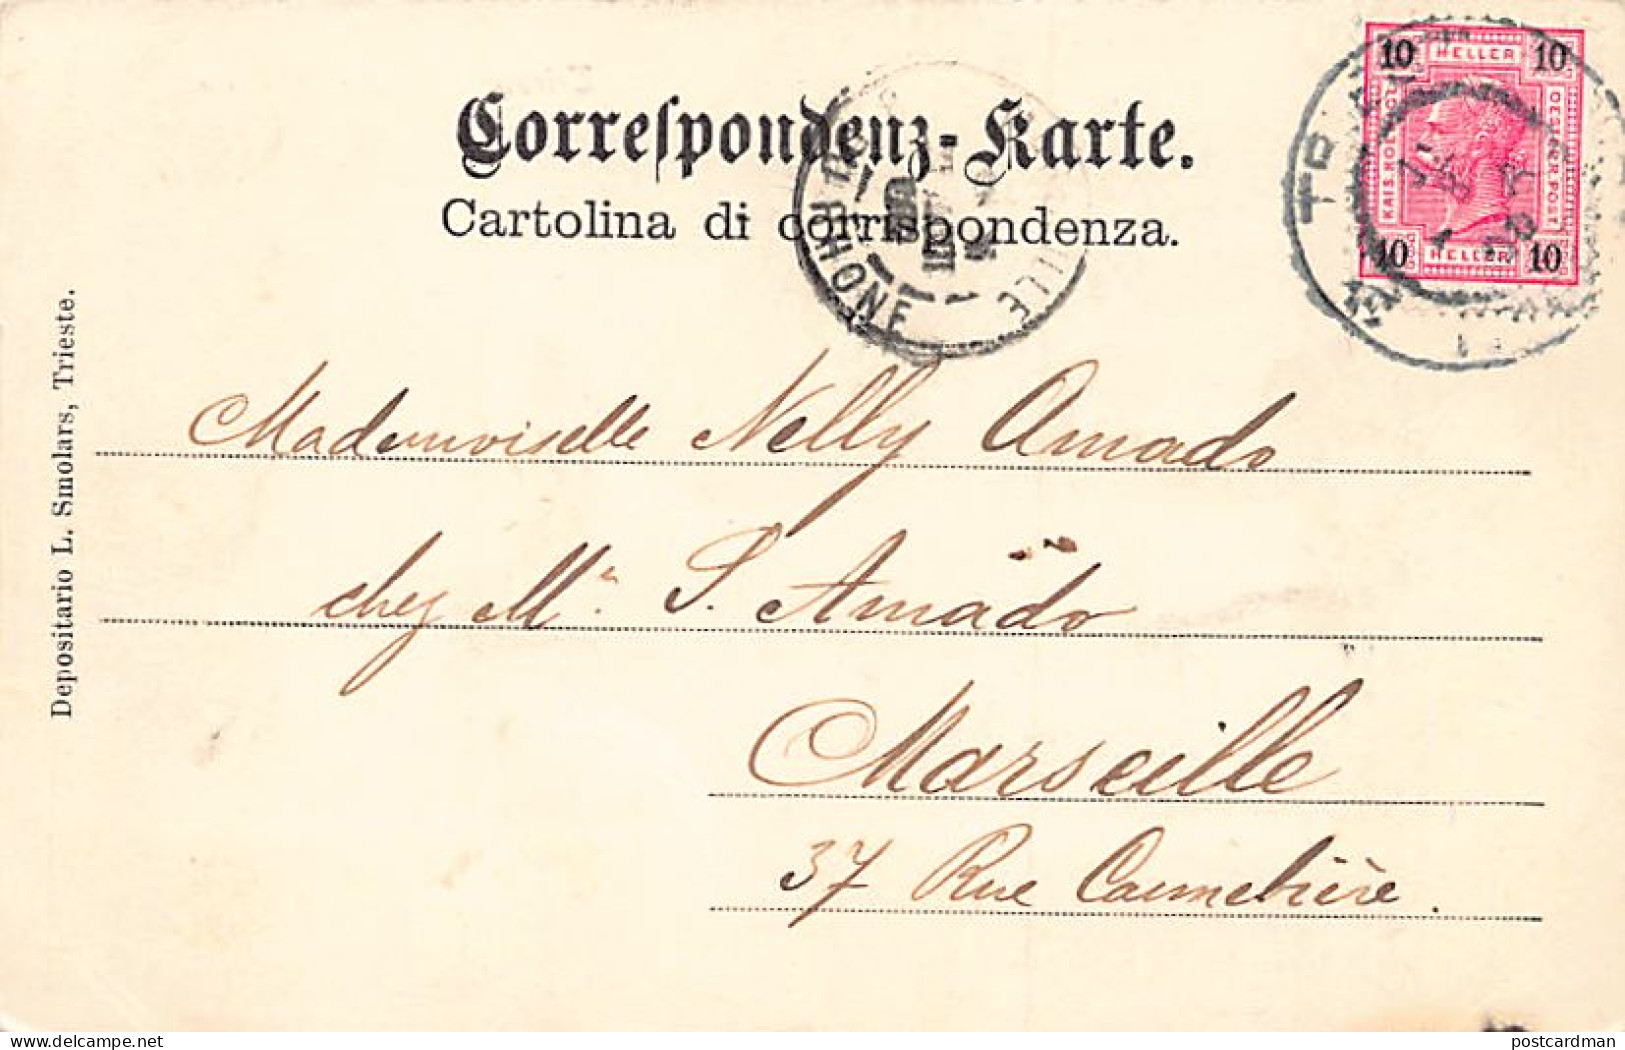 Correspondenz-Karte.
Cartolina di corrispondenza.
10 HELLER 10
KAIS. KÖN.
OESTERR. POST
10 HELLER 10
RHONE
Mademoiselle Nelly Amado
chez Mr S. Amado
Marseille
37 Rue Cannebière.
Depositario L. Smolars, Trieste.
postcardman